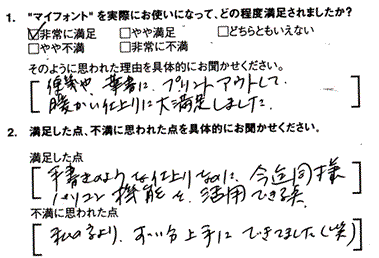 1. "マイフォント"を実際にお使いになって、どの程度満足されましたか?
☑非常に満足 □やや満足 □どちらともいえない
□やや不満 □非常に不満
そのように思われた理由を具体的にお聞かせください。
便箋や、葉書に、プリントアウトして、
暖かい仕上りに大満足しました.
2. 満足した点、不満に思われた点を具体的にお聞かせください。
満足した点
手書きのような仕上りなのに、今迄同様
パソコン機能を、活用できる点
不満に思われた点
私の字より、ずい分上手にできてました(笑)